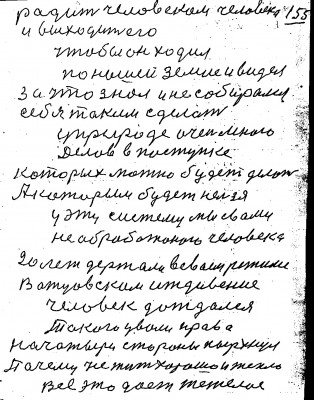 родит человеком человека 155
и выходит его
чтобы он ходил
по нашей земле и видел
за что знал и не собирался
себя таким сделать
природе очень много
делов в поступке
которых можно будет делат
А которым будет нельзя
у эту систему мы с вами
не обработаного человека
20 лет держали в своем режиме
иждивение
человек дождался
такого у вас права
на четыре стороны
Почему не жит хорошо и тепло
всё это дает тежелое